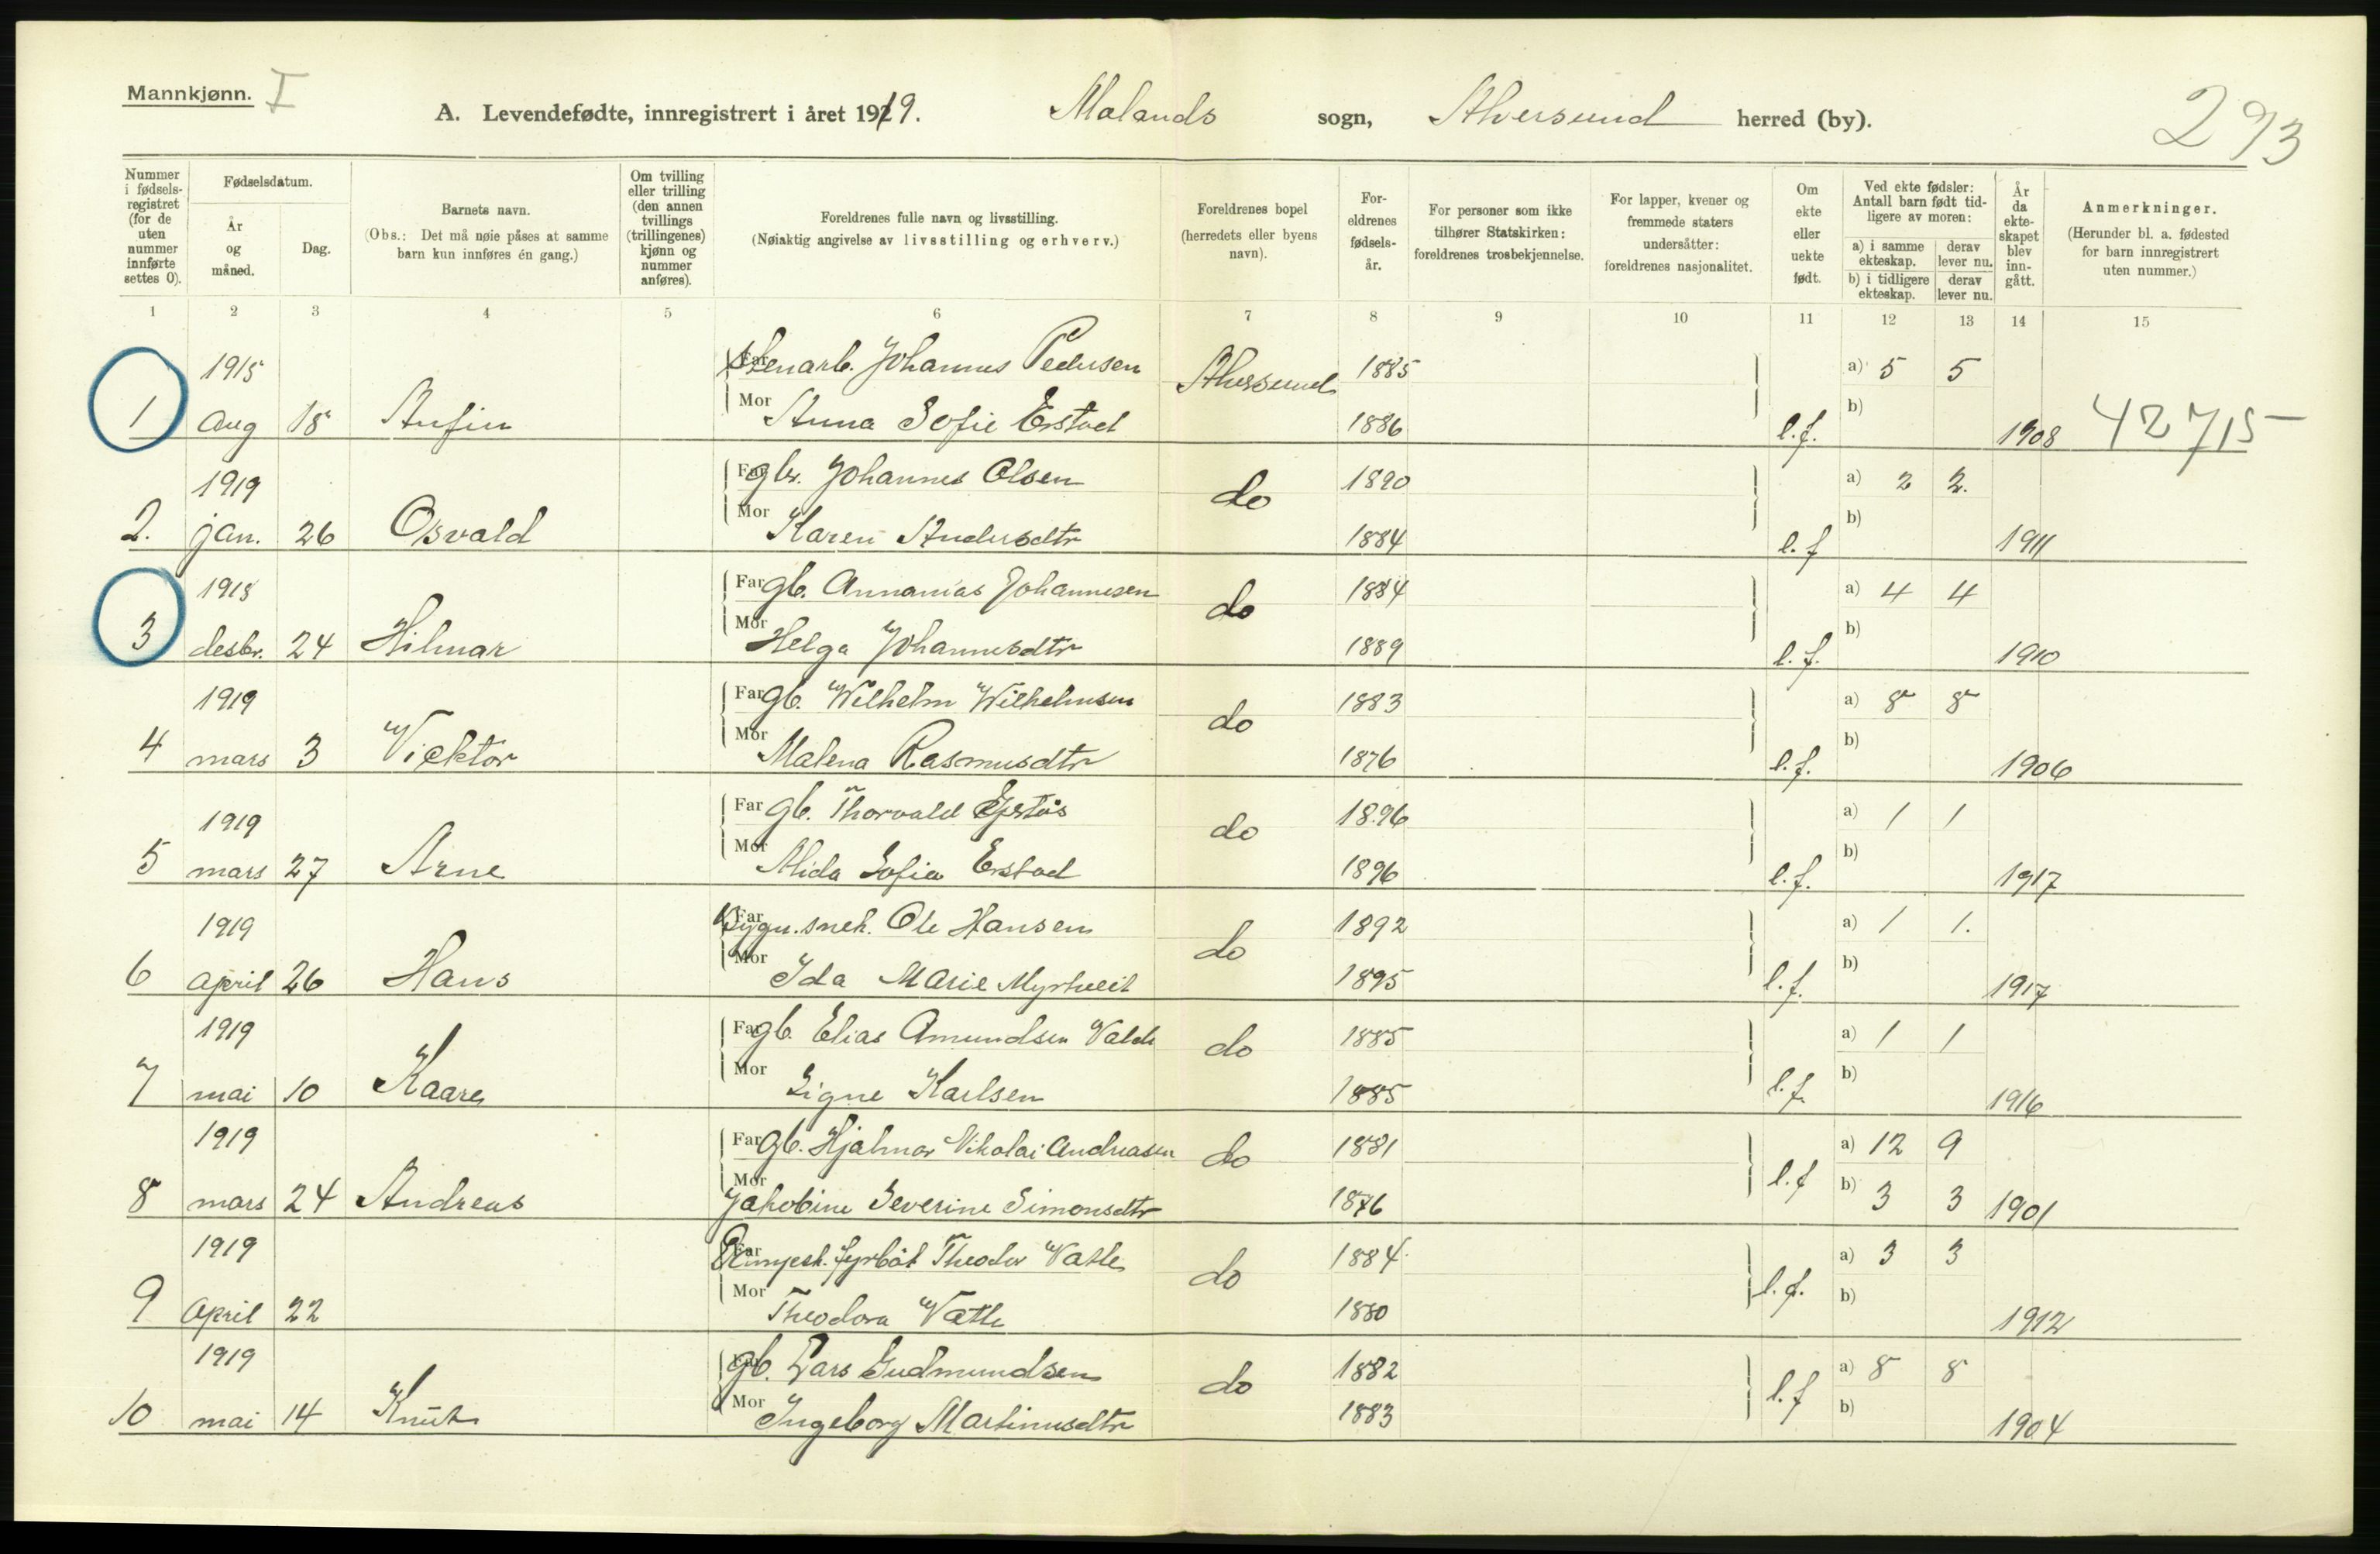 Mannkjønn. I
A. Levendefødte, innregistrert i året 1919. Molands sogn, Alversund herred (by). 293
Nummer i fødselsregistret (for de uten nummer innførte settes 0).
Fødselsdatum.
År og måned.
Dag.
Barnets navn.
(Obs.: Det må nøie påses at samme barn kun innføres én gang.)
Om tvilling eller trilling (den annen tvillings (trillingenes) kjønn og nummer anføres).
Foreldrenes fulle navn og livsstilling.
(Nøiaktig angivelse av livsstilling og erhverv.)
Foreldrenes bopel (herredets eller byens navn).
Foreldrenes fødselsår.
For personer som ikke tilhører Statskirken: foreldrenes trosbekjennelse.
For lapper, kvener og fremmede staters undersåtter: foreldrenes nasjonalitet.
Om ekte eller uekte født.
Ved ekte fødsler: Antall barn født tidligere av moren:
a) i samme ekteskap. derav lever nu.
b) i tidligere ekteskap. derav lever nu.
År da ekteskapet blev inngått.
Anmerkninger.
(Herunder bl. a. fødested for barn innregistrert uten nummer.)
1 2 3 4 5 6 7 8 9 10 11 12 13 14 15
1915 Far Stenarb. Johannes Pedersen Alversund 1885 a) 5 5
1 Aug 18 Anfin Mor Anna Sofie Erstad 1886 l.f. b) 1908 42715
1919 Far gbr. Johannes Olsen do 1890 a) 2 2.
2. jan. 26 Osvald Mor Karen Andersdtr 1884 l.f b) 1911
1918 Far gb. Annanias Johannesen do 1884 a) 4 4
3 desbr. 24 Hilmar Mor Helga Johannesdtr 1889 l.f. b) 1910
1919 Far gb. Wilhelm Wilhelmsen do 1883 a) 8 8
4 mars 3 Vicktor Mor Malena Rasmusdtr 1876 l.f. b) 1906
1919 Far gb. Thorvald do 1896 a) 1 1
5 mars 27 Arne Mor Alida Sofia Erstad 1896 l.f. b) 1917
1919 Far Bygn. snek. Ole Hansen do 1892 a) 1 1.
6 April 26 Hans Mor Ida Marie Myrtveit 1895 l.f. b) 1917
1919 Far gb. Elias Amundsen do 1885 a) 1 1
7 mai 10 Kaare Mor Signe Karlsen 1885 l.f. b) 1916
1919 Far gb. Hjalmar Nikolai Andreasen do 1881 a) 12 9
8 mars 24 Andreas Mor Jakobine Severine Simonsdtr 1876 l.f b) 3 3 1901
1919 Far fyrbøt Theodor Vatle do 1884 a) 3 3
9 April 22 Mor Theodora Vatle 1880 l.f. b) 1912
1919 Far gb. Lars Gudmundsen do 1882 a) 8 8
10 mai 14 Knut Mor Ingeborg Martinusdtr 1883 l.f b) 1904